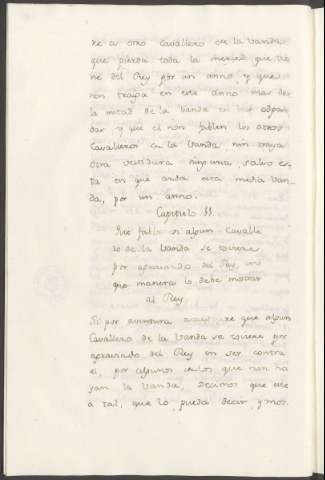 re a otro Cavallero de la Vanda
que pierda toda la merced que tie
ne del Rey por un anno, y que
non trayga en este anno mas de
la mitad de la vanda en las
dar y que el non fablen los otros
Cavalleros de la Vanda nin traya
otra vestidura ninguna, salvo es
ta en que anda esta media Van-
da, por un anno.
Capitulo
Que fabla si algun Cavalle
ro de la Vanda se toviere
por agraviado del Rey, en
que manera lo debe mostrar
al Rey
Si por aventura que algun
Cavallero de la Vanda se toviere por
agraviado del Rey en ser contra
el, por algunos que non ha
yan la Vanda, decimos que este
a tal, que lo pueda decir, y mos-